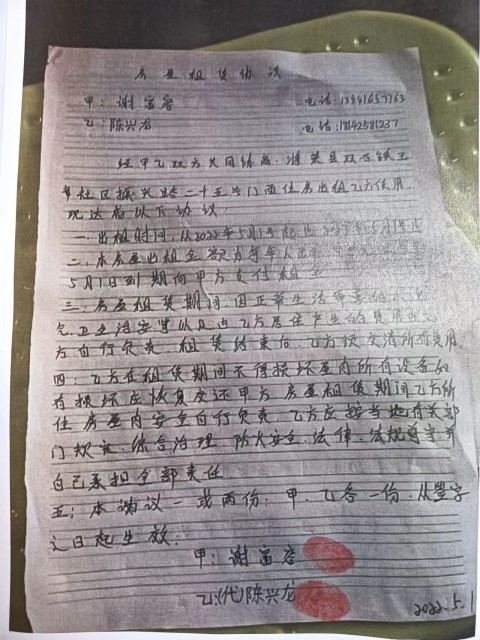 房屋租赁协议
甲：谢富容 电话：
乙：陈兴龙 电话：18142581237
经甲乙双方共同协商，将荣县双古镇
社区振兴路二十五号门面住房出租乙方使用
现达成以下协议
一、出租时间，从2022年5月1号起
二、本房屋出租金额为每年人民
5月1日到期向甲方支付租金
三、房屋租赁期间，因正常生活所需的水电
气、卫生治安等以及由乙方居住产生的费用由乙
方自行负责。租赁结束后，乙方须交清所有费用
四：乙方在租赁期间不得损坏屋内所有设备如
有损坏应恢复交还甲方。房屋租赁期间乙方所
住房屋内安全自行负责。乙方应按当地有关部
门规定，综合治理、防火安全、法律、法规遵守并
自己承担全部责任
五：本协议一式两份，甲、乙各一份，从签字
之日起生效：
甲：谢富容
乙：(代)陈兴龙
2022.5.1